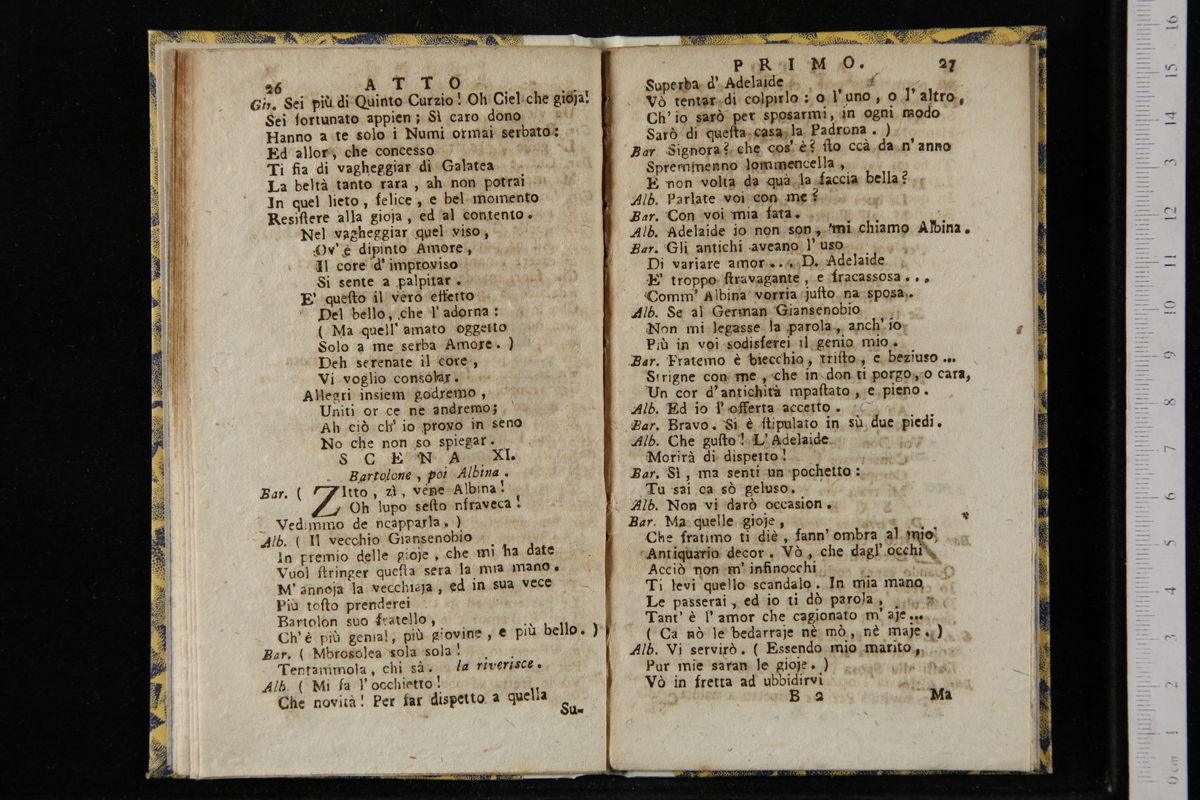 26 ATTO
Gin. Sei più di Quinto Curzio! Oh Ciel che gioja!
Sei fortunato appien; Sì caro dono
Hanno a te solo i Numi ormai serbato:
Ed allor, che concesso
Ti fia di vagheggiar di Galatea
La beltà tanto rara, ah non potrai
In quel lieto, felice, e bel momento
Resiſtere alla gioja, ed al contento.
Nel vagheggiar quel viso,
Ov' è dipinto Amore,
Il core d' improviso
Si sente a palpitar.
E' queſto il vero effetto
Del bello, che l' adorna:
( Ma quell' amato oggetto
Solo a me serba Amore. )
Deh serenate il core,
Vi voglio consolar.
Allegri insiem godremo,
Uniti or ce ne andremo;
Ah ciò ch' io provo in seno
No che non so spiegar.
SCENA XI.
Bartolone, poi Albina.
Bar. ( ZItto, zì, vene Albina!
Oh lupo seſto nfraveca!
Vedimmo de ncapparla. )
Alb. ( Il vecchio Giansenobio
In premio delle gioje, che mi ha date
Vuol ſtringer queſta sera la mia mano.
M' annoja la vecchiaja, ed in sua vece
Più toſto prenderei
Bartolon suo fratello,
Ch' è più genial, più giovine, e più bello. )
Bar. ( Mbrosolea sola sola!
Tentammola, chi sà. la riverisce.
Alb. ( Mi fa l' occhietto!
Che novità! Per far dispetto a quella
Su-
PRIMO. 27
Superba d' Adelaide
Vò tentar di colpirlo: o l' uno, o l' altro,
Ch' io sarò per sposarmi, in ogni modo
Sarò di queſta casa la Padrona. )
Bar Signora? che cos' è? ſto ccà da n' anno
Spremmenno lommencella,
E non volta da quà la faccia bella?
Alb. Parlate voi con me?
Bar. Con voi mia fata.
Alb. Adelaide io non son, mi chiamo Albina.
Bar. Gli antichi aveano l' uso
Di variare amor... D. Adelaide
E' troppo ſtravagante, e fracassosa...
Comm' Albina vorria juſto na sposa.
Alb. Se al German Giansenobio
Non mi legasse la parola, anch' io
Più in voi sodisferei il genio mio.
Bar. Fratemo è biecchio, triſto, e beziuso...
Strigne con me, che in don ti porgo, o cara,
Un cor d' antichità mpaſtato, e pieno.
Alb. Ed io l' offerta accetto.
Bar. Bravo. Si è ſtipulato in sù due piedi.
Alb. Che guſto! L' Adelaide
Morirà di dispetto!
Bar. Sì, ma senti un pochetto:
Tu sai ca sò geluso.
Alb. Non vi darò occasion.
Bar. Ma quelle gioje,
Che fratimo ti diè, fann' ombra al mio
Antiquario decor. Vò, che dagl' occhi
Acciò non m' infinocchi
Ti levi quello scandalo. In mia mano
Le passerai, ed io ti dò parola,
Tant' è l' amor che cagionato m' aje...
( Ca nò le bedarraje nè mò, nè maje. )
Alb. Vi servirò. ( Essendo mio marito,
Pur mie saran le gioje. )
Vò in fretta ad ubbidirvi
B 2 Ma
16
15
14
13
12
11
10
9
8
7
6
5
4
3
2
1
0 cm